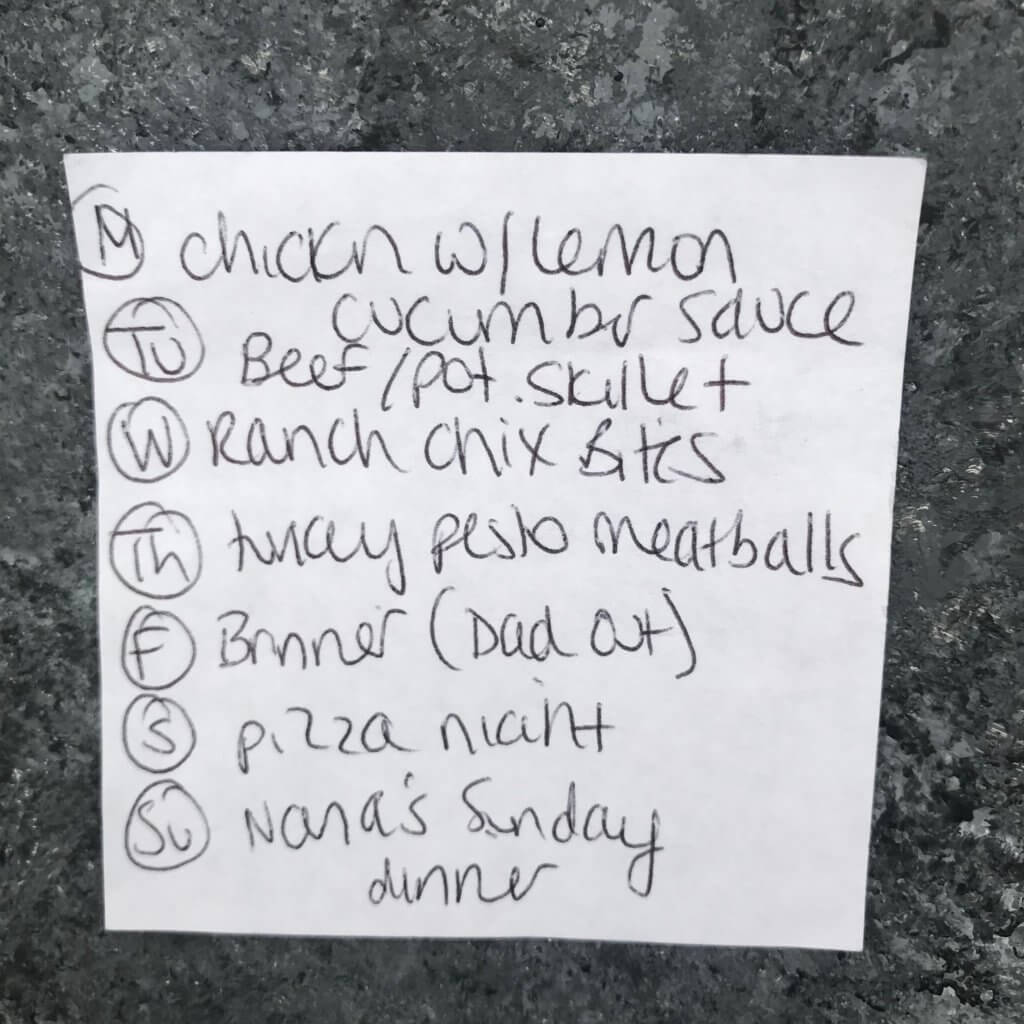 M chicken w/ lemon
cucumber sauce
Tu Beef / pot. skillet
W Ranch chix Bites
Th turkey pesto meatballs
F Brinner (Dad out)
S pizza night
Su Nana's Sunday
dinner